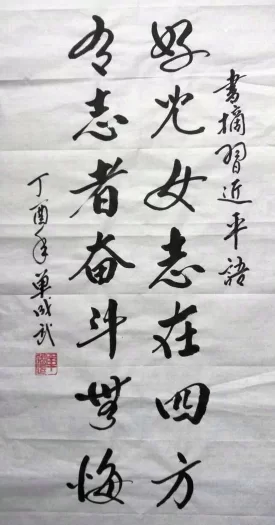 書摘習近平語
好児女志在四方
有志者奋斗無悔
丁酉年單成武